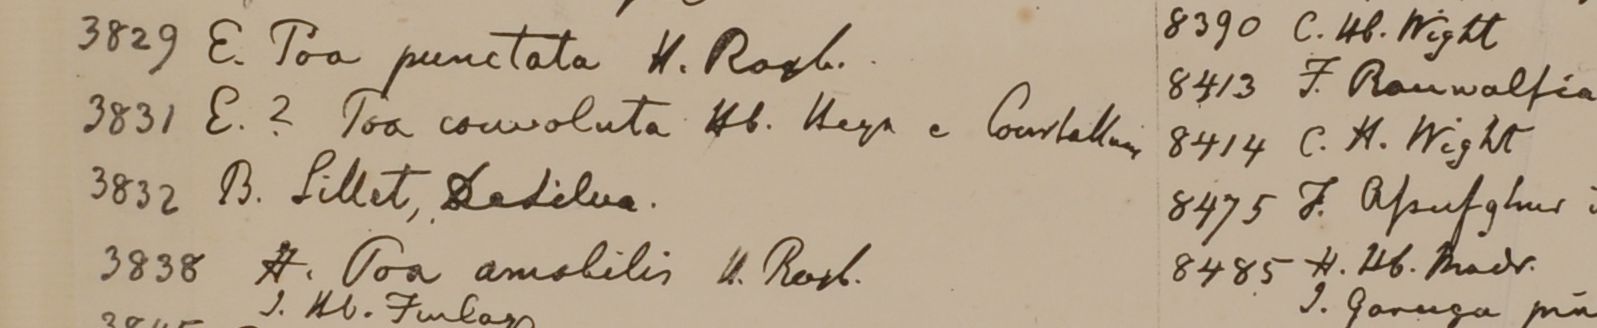 3829 E. Poa punctata H. Roxb.
3831 E. ? Poa convoluta Hb. Heyn e
3832 B. Sillet, DeSilva.
3838 H. Poa amabilis H. Roxb.
I. Hb. Finlay
8390 C. Hb. Wight
8413 F. Rauwolfia
8414 C. H. Wight
8475 F.
8485 H. Hb. Madr.
I. Garuga pin